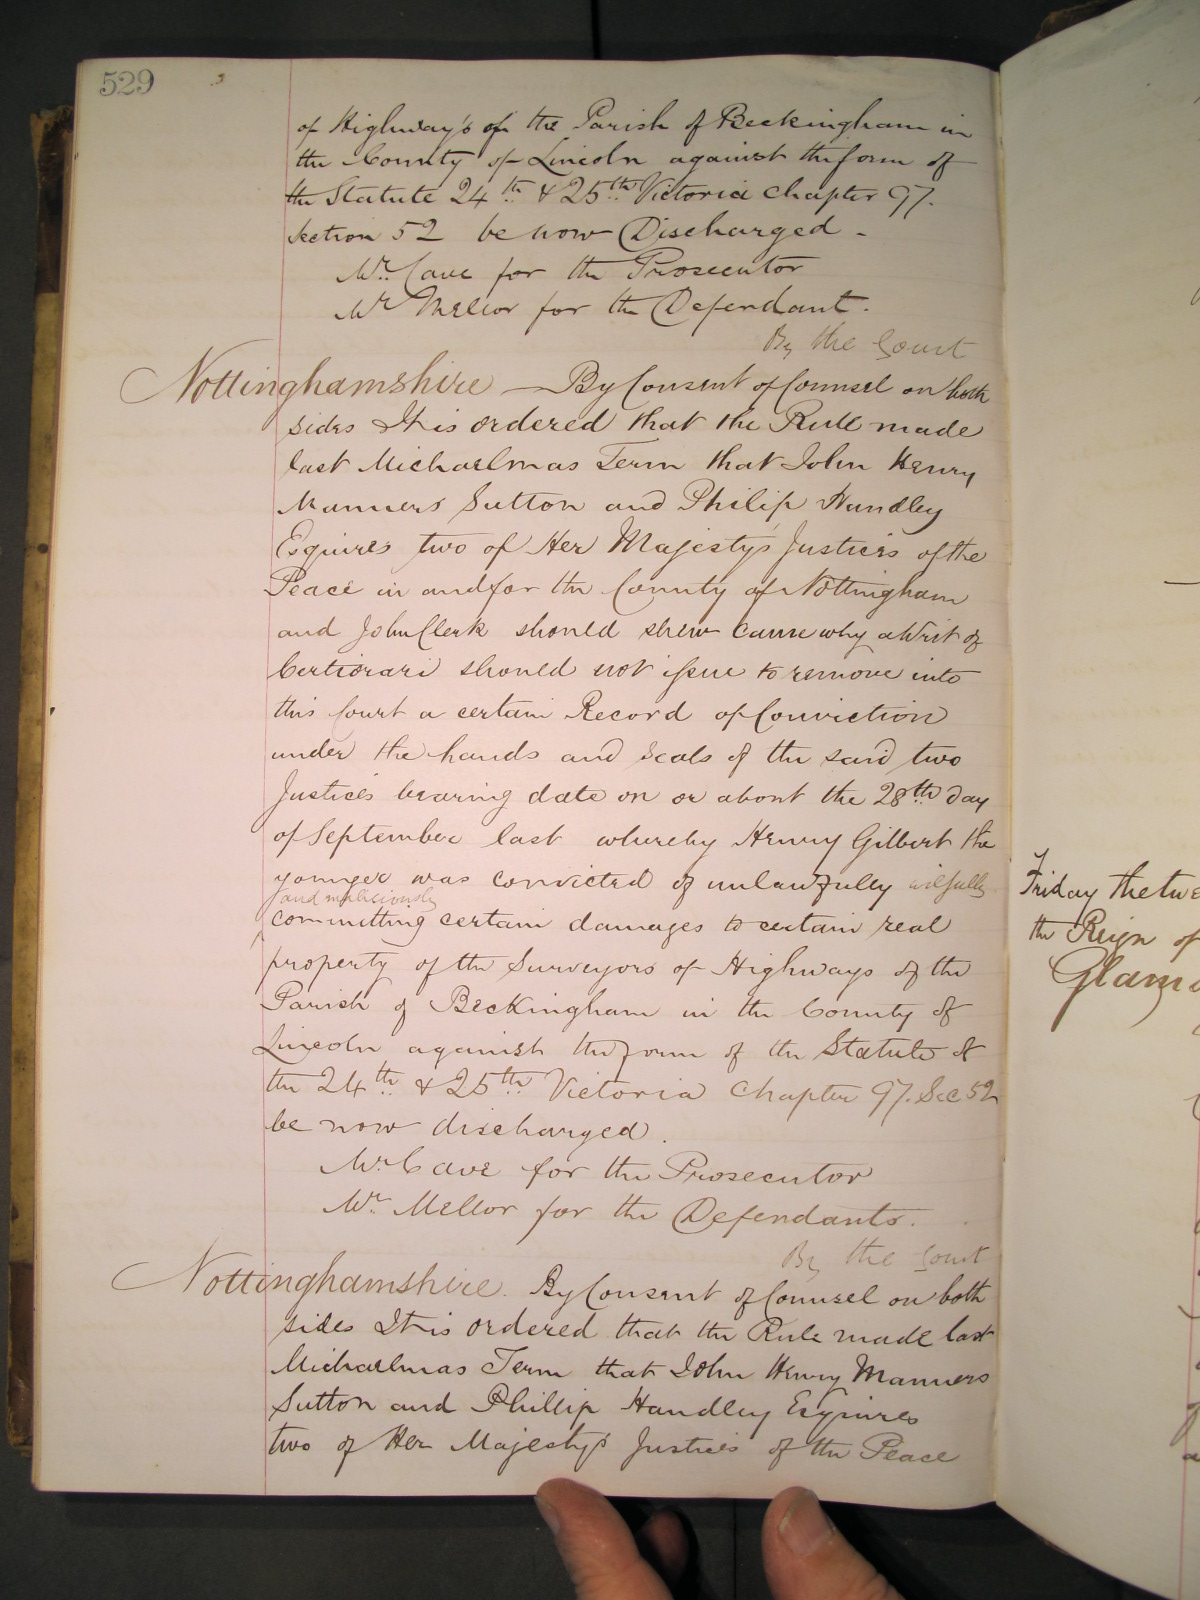 529
of Highway's of the Parish of Beckingham in
the County of Lincoln against the form of
the Statute 24th & 25th Victoria Chapter 97.
Section 52 be now Discharged -
Mr. Cave for the Prosecutor
Mr Mellor for the Defendant.
By the Court
Nottinghamshire — By Consent of Counsel on both
sides It is ordered that the Rule made
last Michaelmas Term that John Henry
Manners Sutton and Philip Handley
Esquires two of Her Majesty's Justices of the
Peace in and for the County of Nottingham
and John Clerk should shew cause why a Writ of
Certiorari should not issue to remove into
this Court a certain Record of Conviction
under the hands and Seals of the said two
Justices bearing date on or about the 28th day
of September last whereby Henry Gilbert the
younger was convicted of unlawfully wilfully
and maliciously
committing certain damages to certain real
property of the Surveyors of Highways of the
Parish of Beckingham in the County of
Lincoln against the form of the Statute of
the 24th & 25th Victoria Chapter 97. Sec 52
be now discharged.
Mr. Cave for the Prosecutor
Mr. Mellor for the Defendants.
By the Court
Nottinghamshire. By Consent of Counsel on both
sides It is ordered that the Rule made last
Michaelmas Term that John Henry Manners
Sutton and Phillip Handley Esquires
two of Her Majesty's Justices of the Peace
Friday the twe
the Reign of
Glam